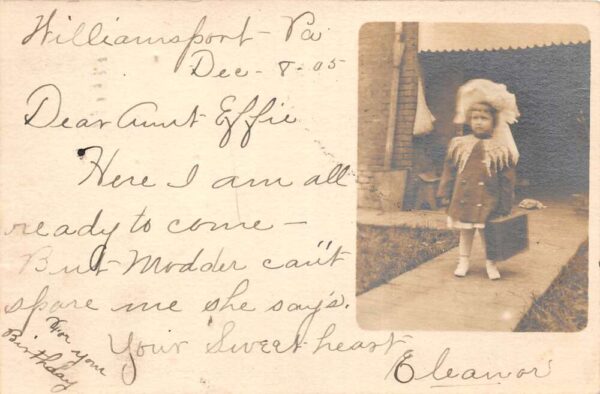 Williamsport - Pa
Dec - 8 - 05
Dear Aunt Effie
Here I am all
ready to come -
But Modder can't
spare me she say's.
Your Sweet heart
Eleanor
For your
Birthday